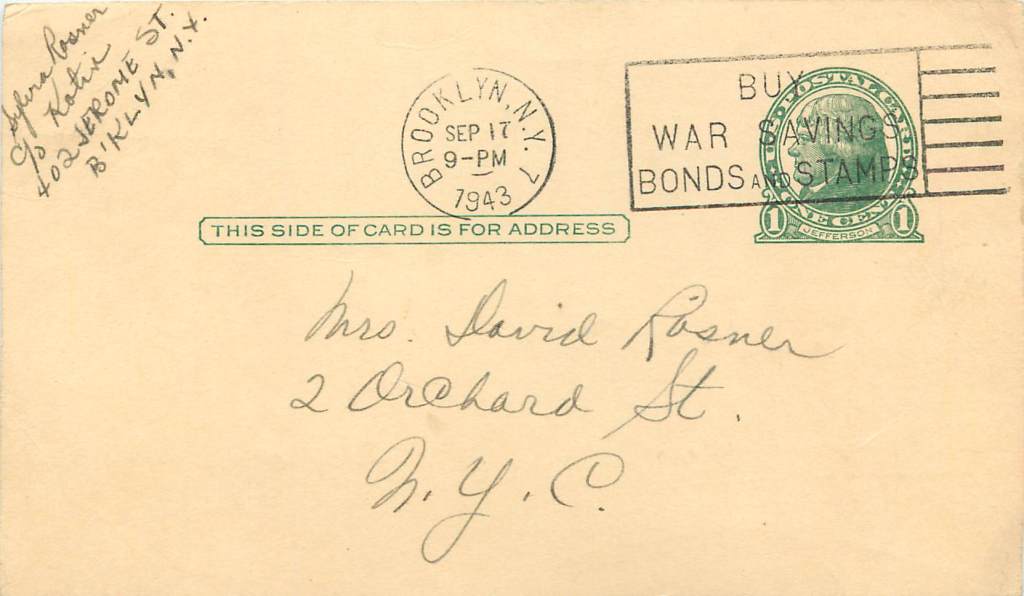 Sylvia Rosner
c/o Katix
402 JEROME ST.
B'KLYN, N.Y.
BROOKLYN, N.Y. 7
SEP 17
9-PM
1943
BUY
WAR SAVINGS
BONDS AND STAMPS
U.S. POSTAL CARD
ONE CENT
1 JEFFERSON 1
THIS SIDE OF CARD IS FOR ADDRESS
Mrs. David Rosner
2 Orchard St.
N.Y.C.